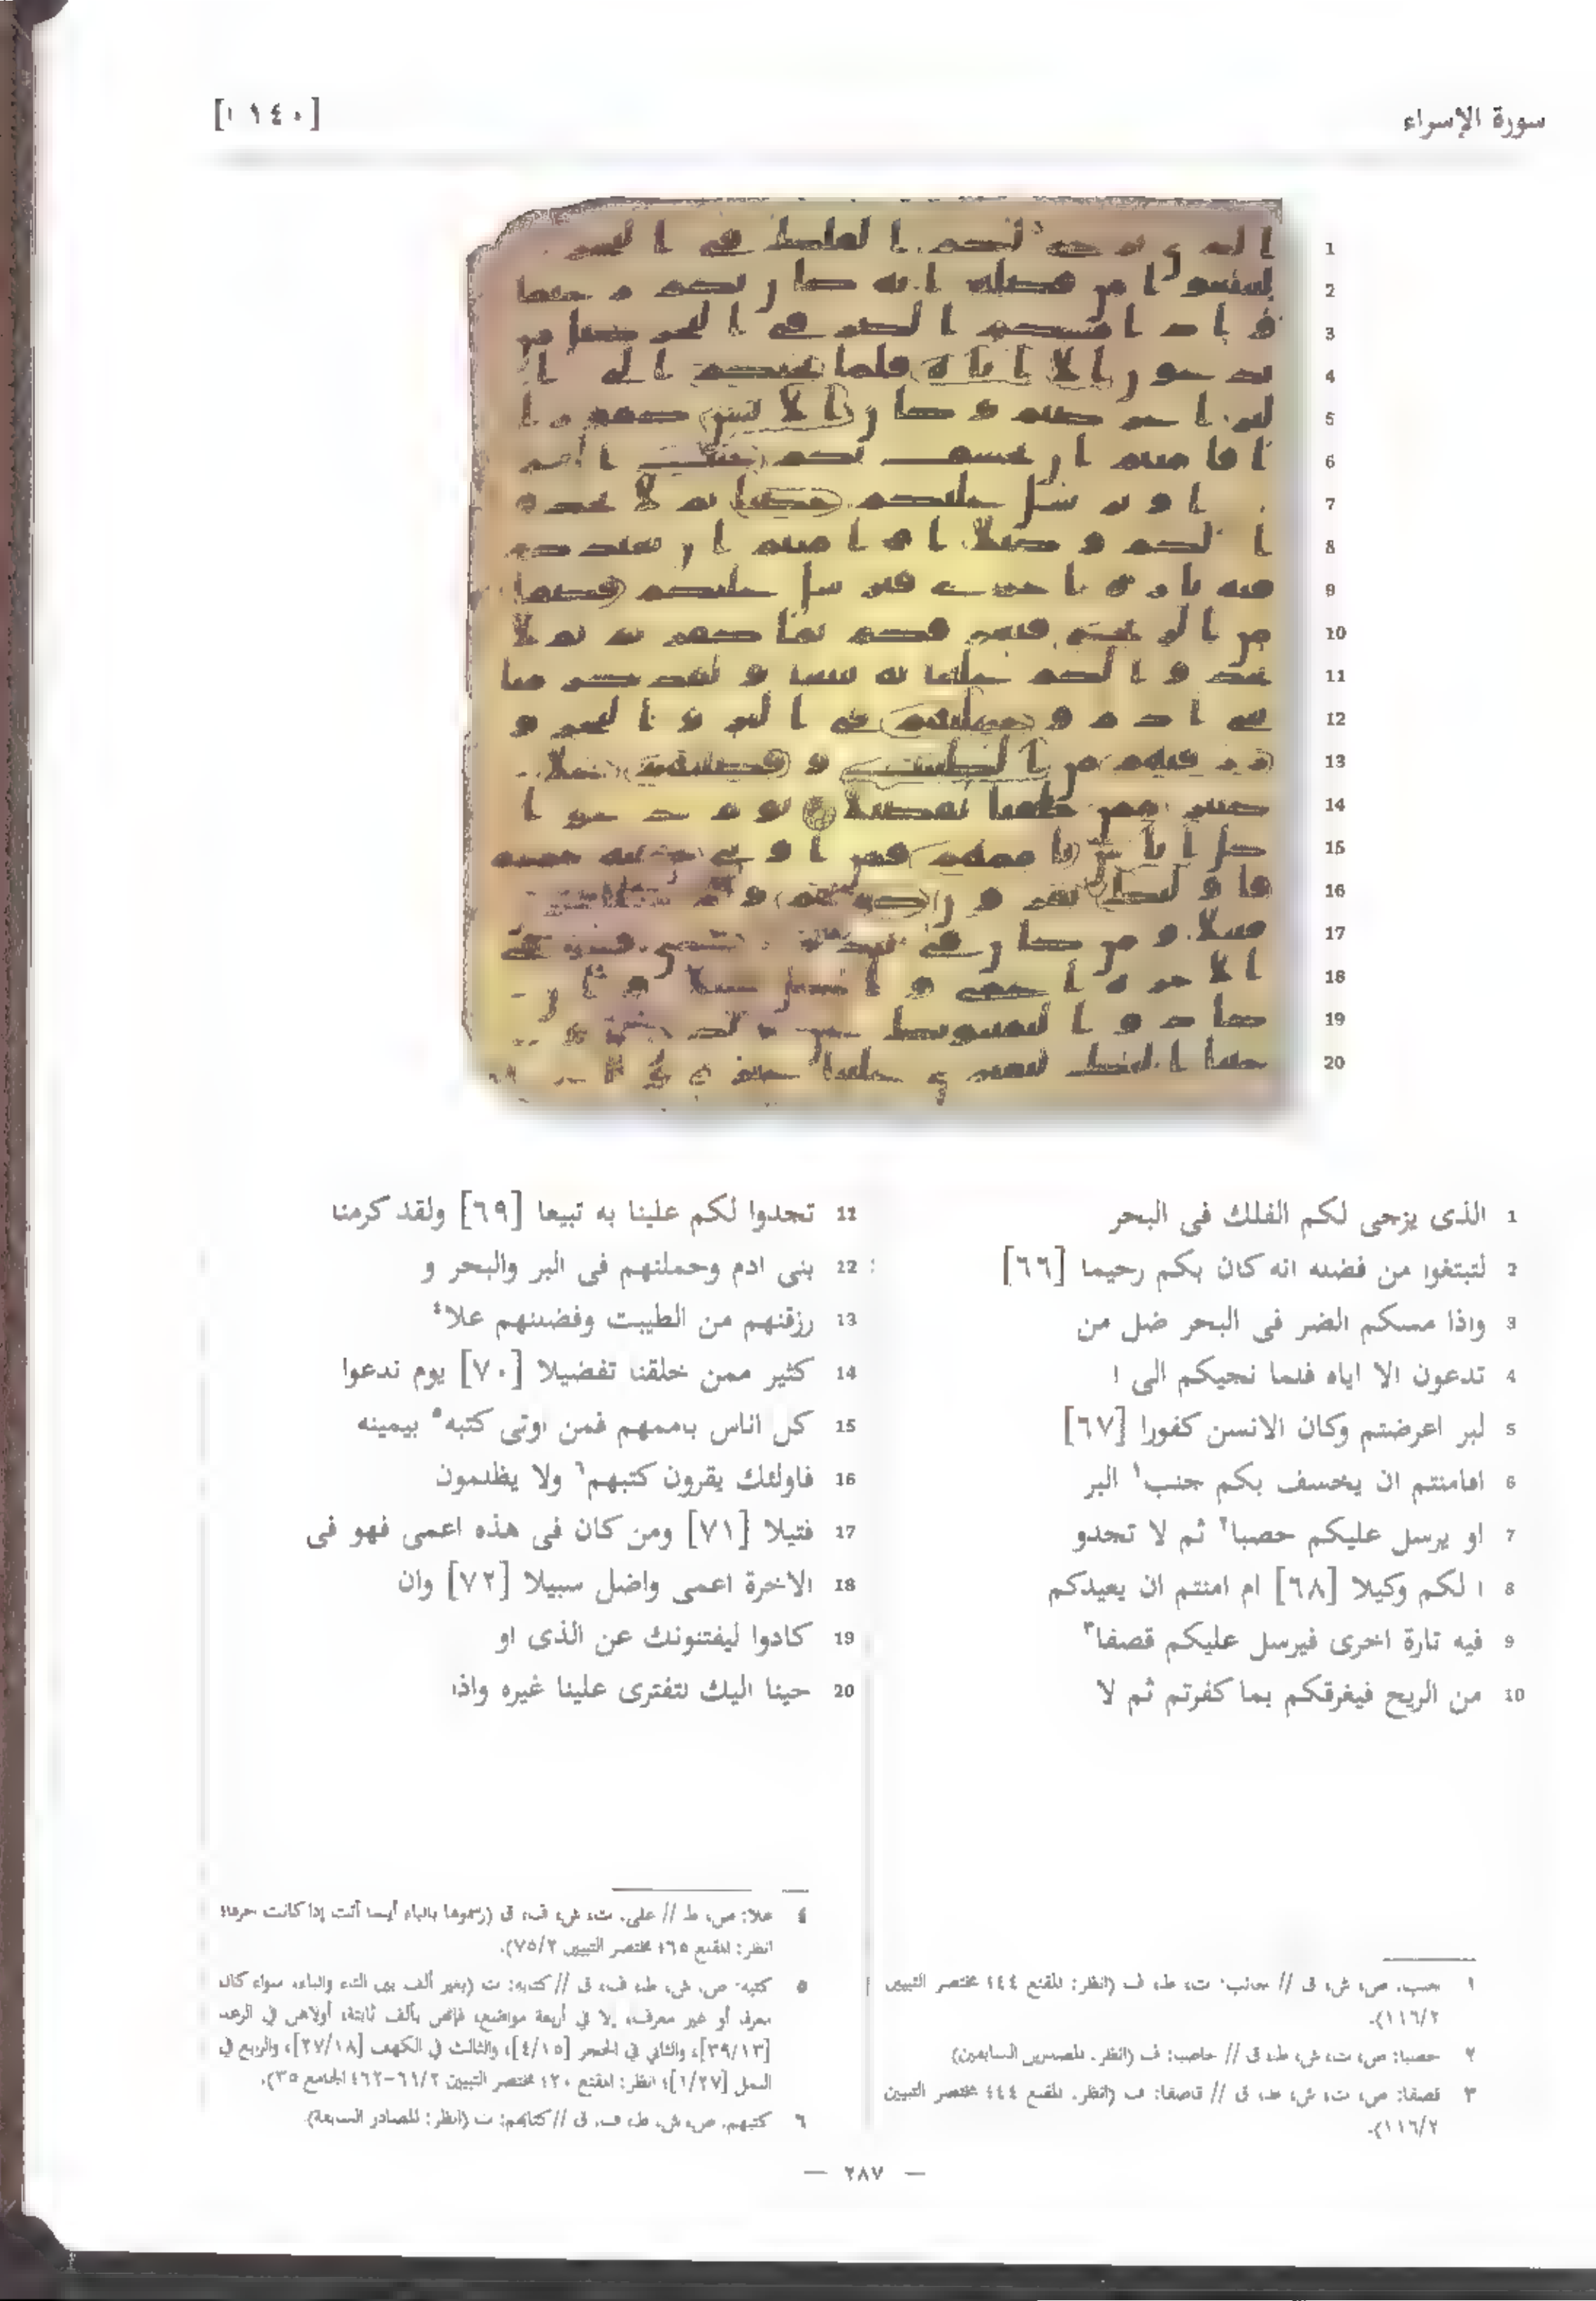 سورة الإسراء
[١٤٠ ا]
1 الذى يزجى لكم الفلك فى البحر
2 لتبتغوا من فضله انه كان بكم رحيما [٦٦]
3 واذا مسكم الضر فى البحر ضل من
4 تدعون الا اياه فلما نجيكم الى ا
5 لبر اعرضتم وكان الانسن كفورا [٦٧]
6 افامنتم ان يخسف بكم جنب١ البر
7 او يرسل عليكم حصبا٢ ثم لا تجدو
8 ا لكم وكيلا [٦٨] ام امنتم ان يعيدكم
9 فيه تارة اخرى فيرسل عليكم قصفا٣
10 من الريح فيغرقكم بما كفرتم ثم لا
11 تجدوا لكم علينا به تبيعا [٦٩] ولقد كرمنا
22 بنى ادم وحملنهم فى البر والبحر و
13 رزقنهم من الطيبت وفضلنهم علا٤
14 كثير ممن خلقنا تفضيلا [٧٠] يوم ندعوا
15 كل اناس باممهم فمن اوتى كتبه٥ بيمينه
16 فاولئك يقرون كتبهم٦ ولا يظلمون
17 فتيلا [٧١] ومن كان فى هذه اعمى فهو فى
18 الاخرة اعمى واضل سبيلا [٧٢] وان
19 كادوا ليفتنونك عن الذى او
20 حينا اليك لتفترى علينا غيره واذا
١ جنب: ص، ش، ق // جانب: ت، ط، ف (انظر: المقنع ٤٤؛ مختصر التبيين
١١٦/٢).
٢ حصبا: ص، ت، ش، ط، ق // حاصبا: ف (انظر: المصدرين السابقين)
٣ قصفا: ص، ت، ش، ط، ق // قاصفا: ف (انظر: المقنع ٤٤؛ مختصر التبيين
١١٦/٢).
٤ علا: ص، ط // على: ت، ش، ف، ق (رسموها بالياء أينما أتت إذا كانت حرفا؛
انظر: المقنع ٦٥؛ مختصر التبيين ٧٥/٢).
٥ كتبه: ص، ش، ط، ف، ق // كتابه: ت (بغير ألف بين التاء والباء، سواء كان
معرفا أو غير معرف، إلا في أربعة مواضع، فإنهن بألف ثابتة، أولاهن في الرعد
[٣٩/١٣]، والثاني في الحجر [٤/١٥]، والثالث في الكهف [٢٧/١٨]، والرابع في
النمل [١/٢٧]؛ انظر: المقنع ٢٠؛ مختصر التبيين ٦١/٢-٦٢؛ الجامع ٣٥).
٦ كتبهم: ص، ش، ط، ف، ق // كتابهم: ت (انظر: المصادر السابقة)
— ٢٨٧ —